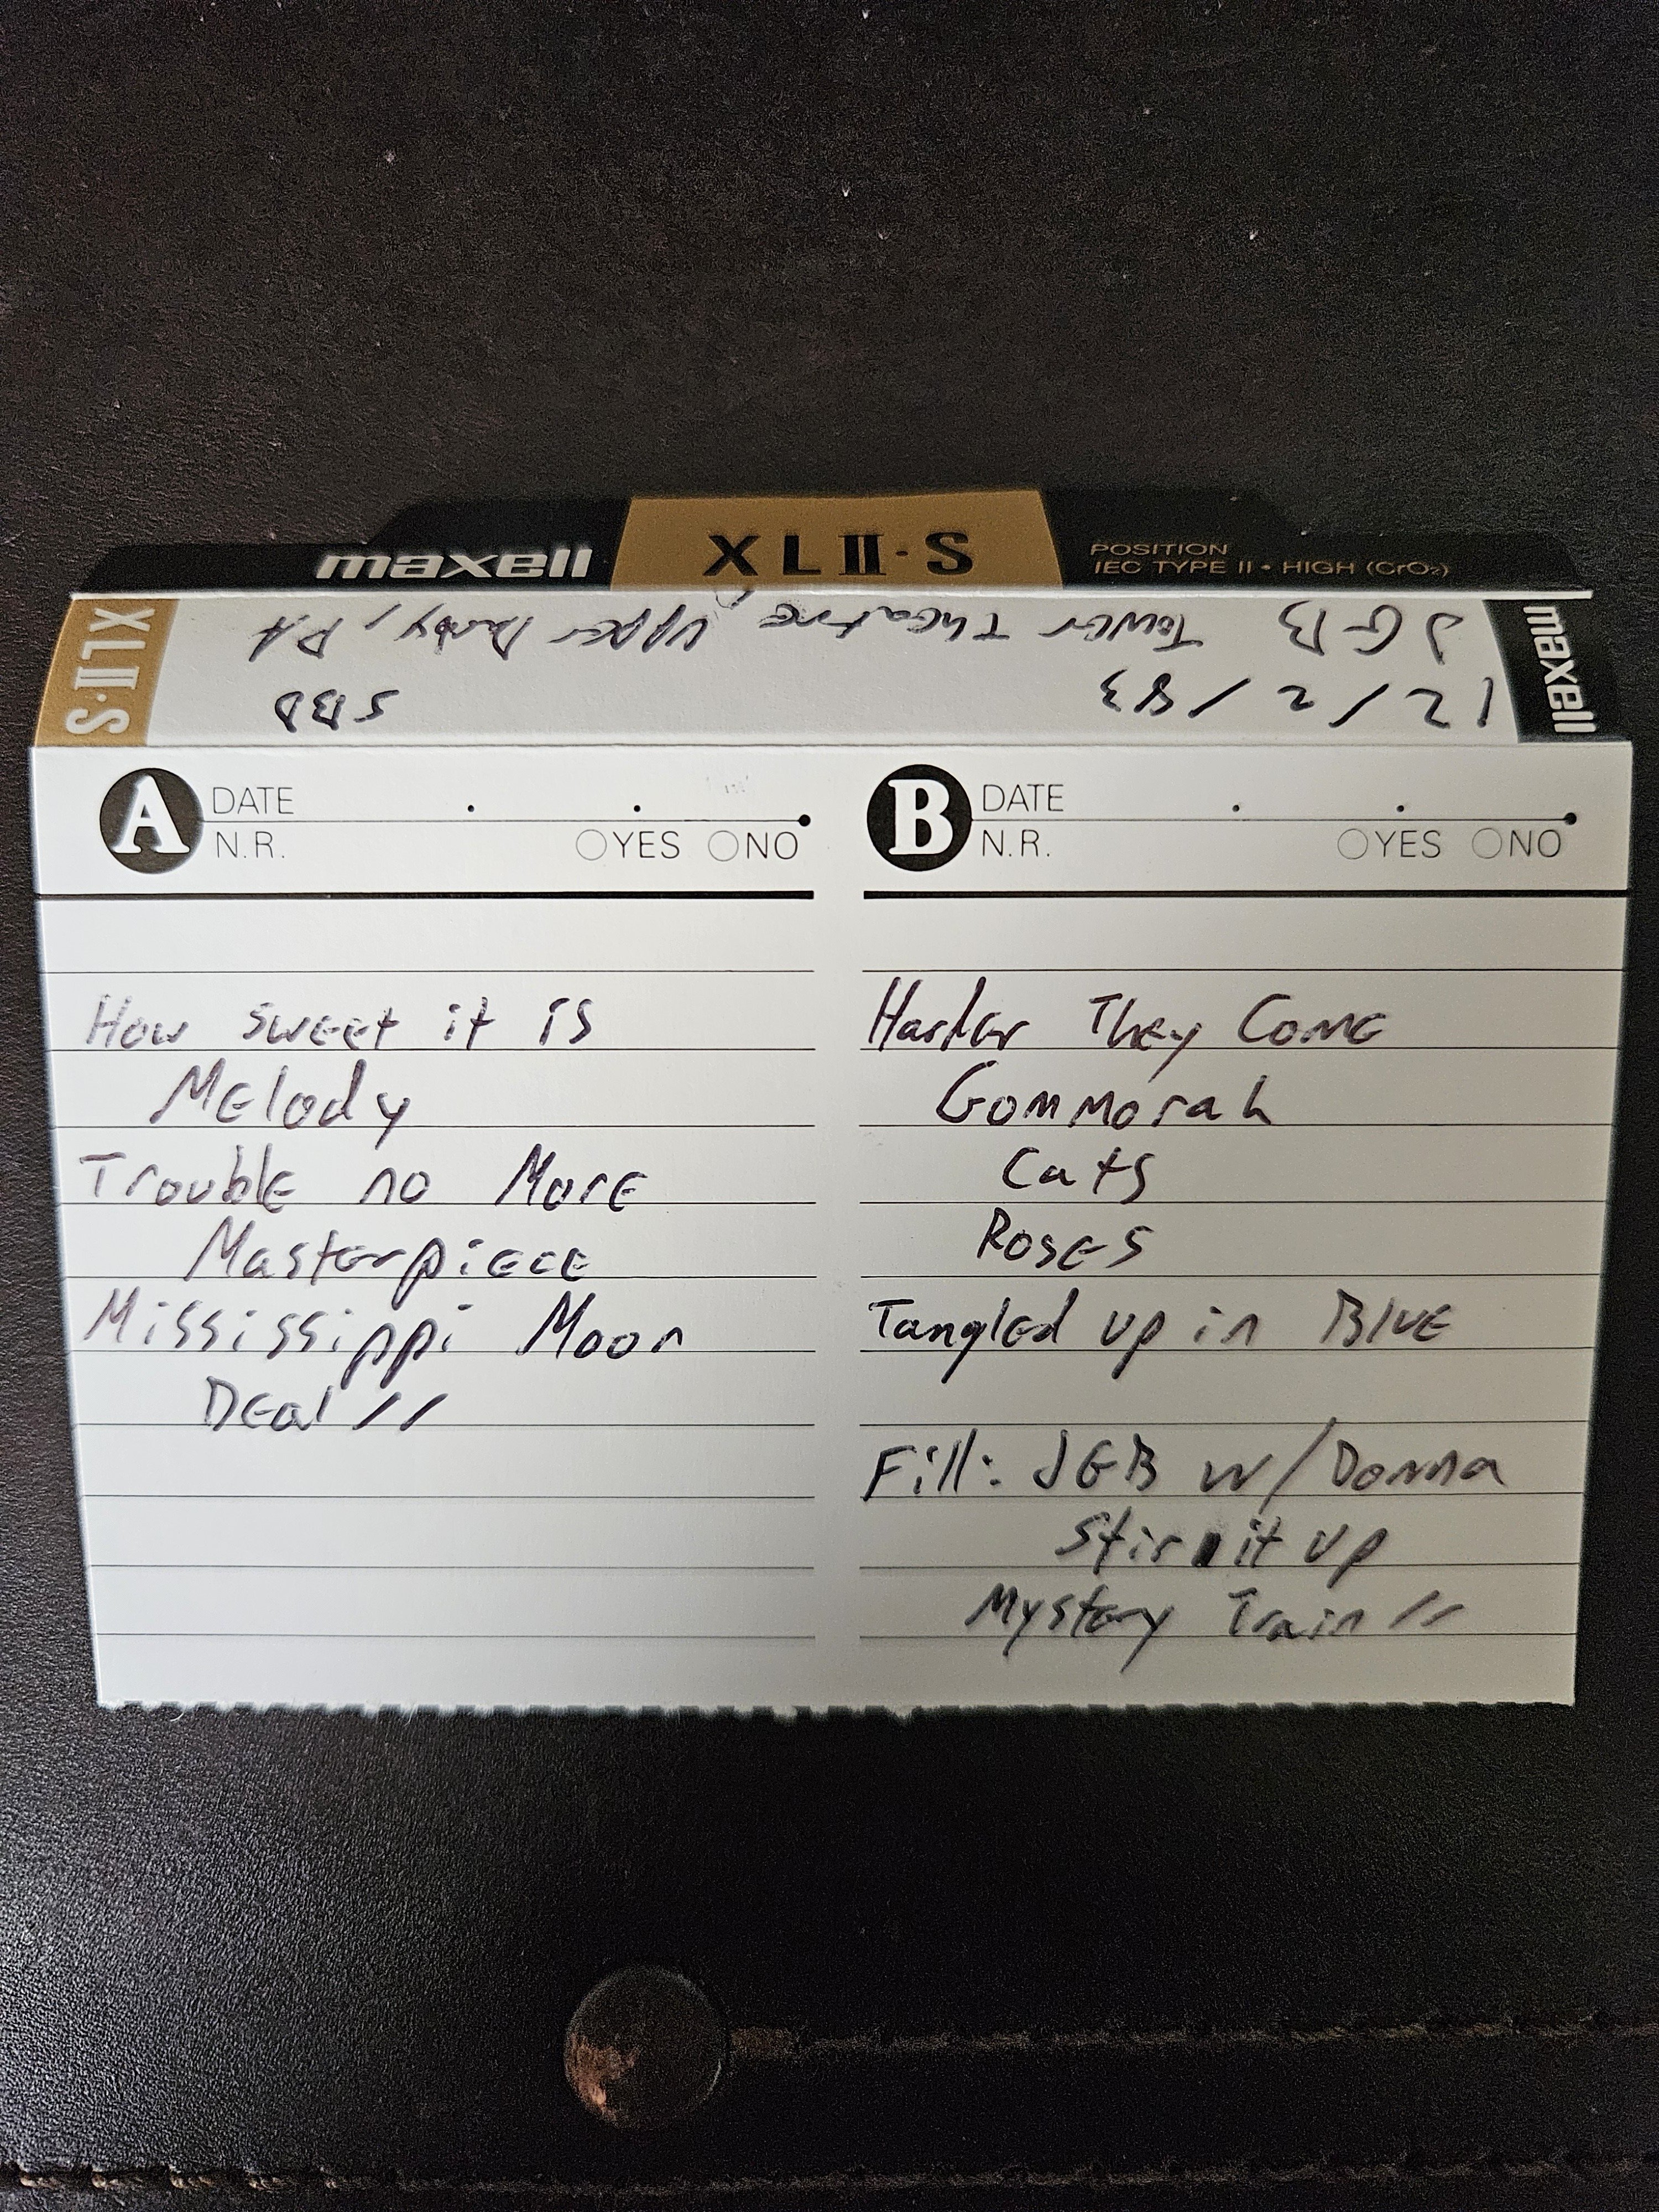 maxell XLII·S POSITION
IEC TYPE II • HIGH (CrO₂)
XLII·S
maxell
JGB Tower Theatre, Upper Darby, PA
12/2/83 SBD
A DATE
N.R. YES NO
How sweet it is
Melody
Trouble no More
Masterpiece
Mississippi Moon
Deal //
B DATE
N.R. YES NO
Harder They Come
Gommorah
Cats
Roses
Tangled up in Blue
Fill: JGB w/Donna
Stir it up
Mystery Train //